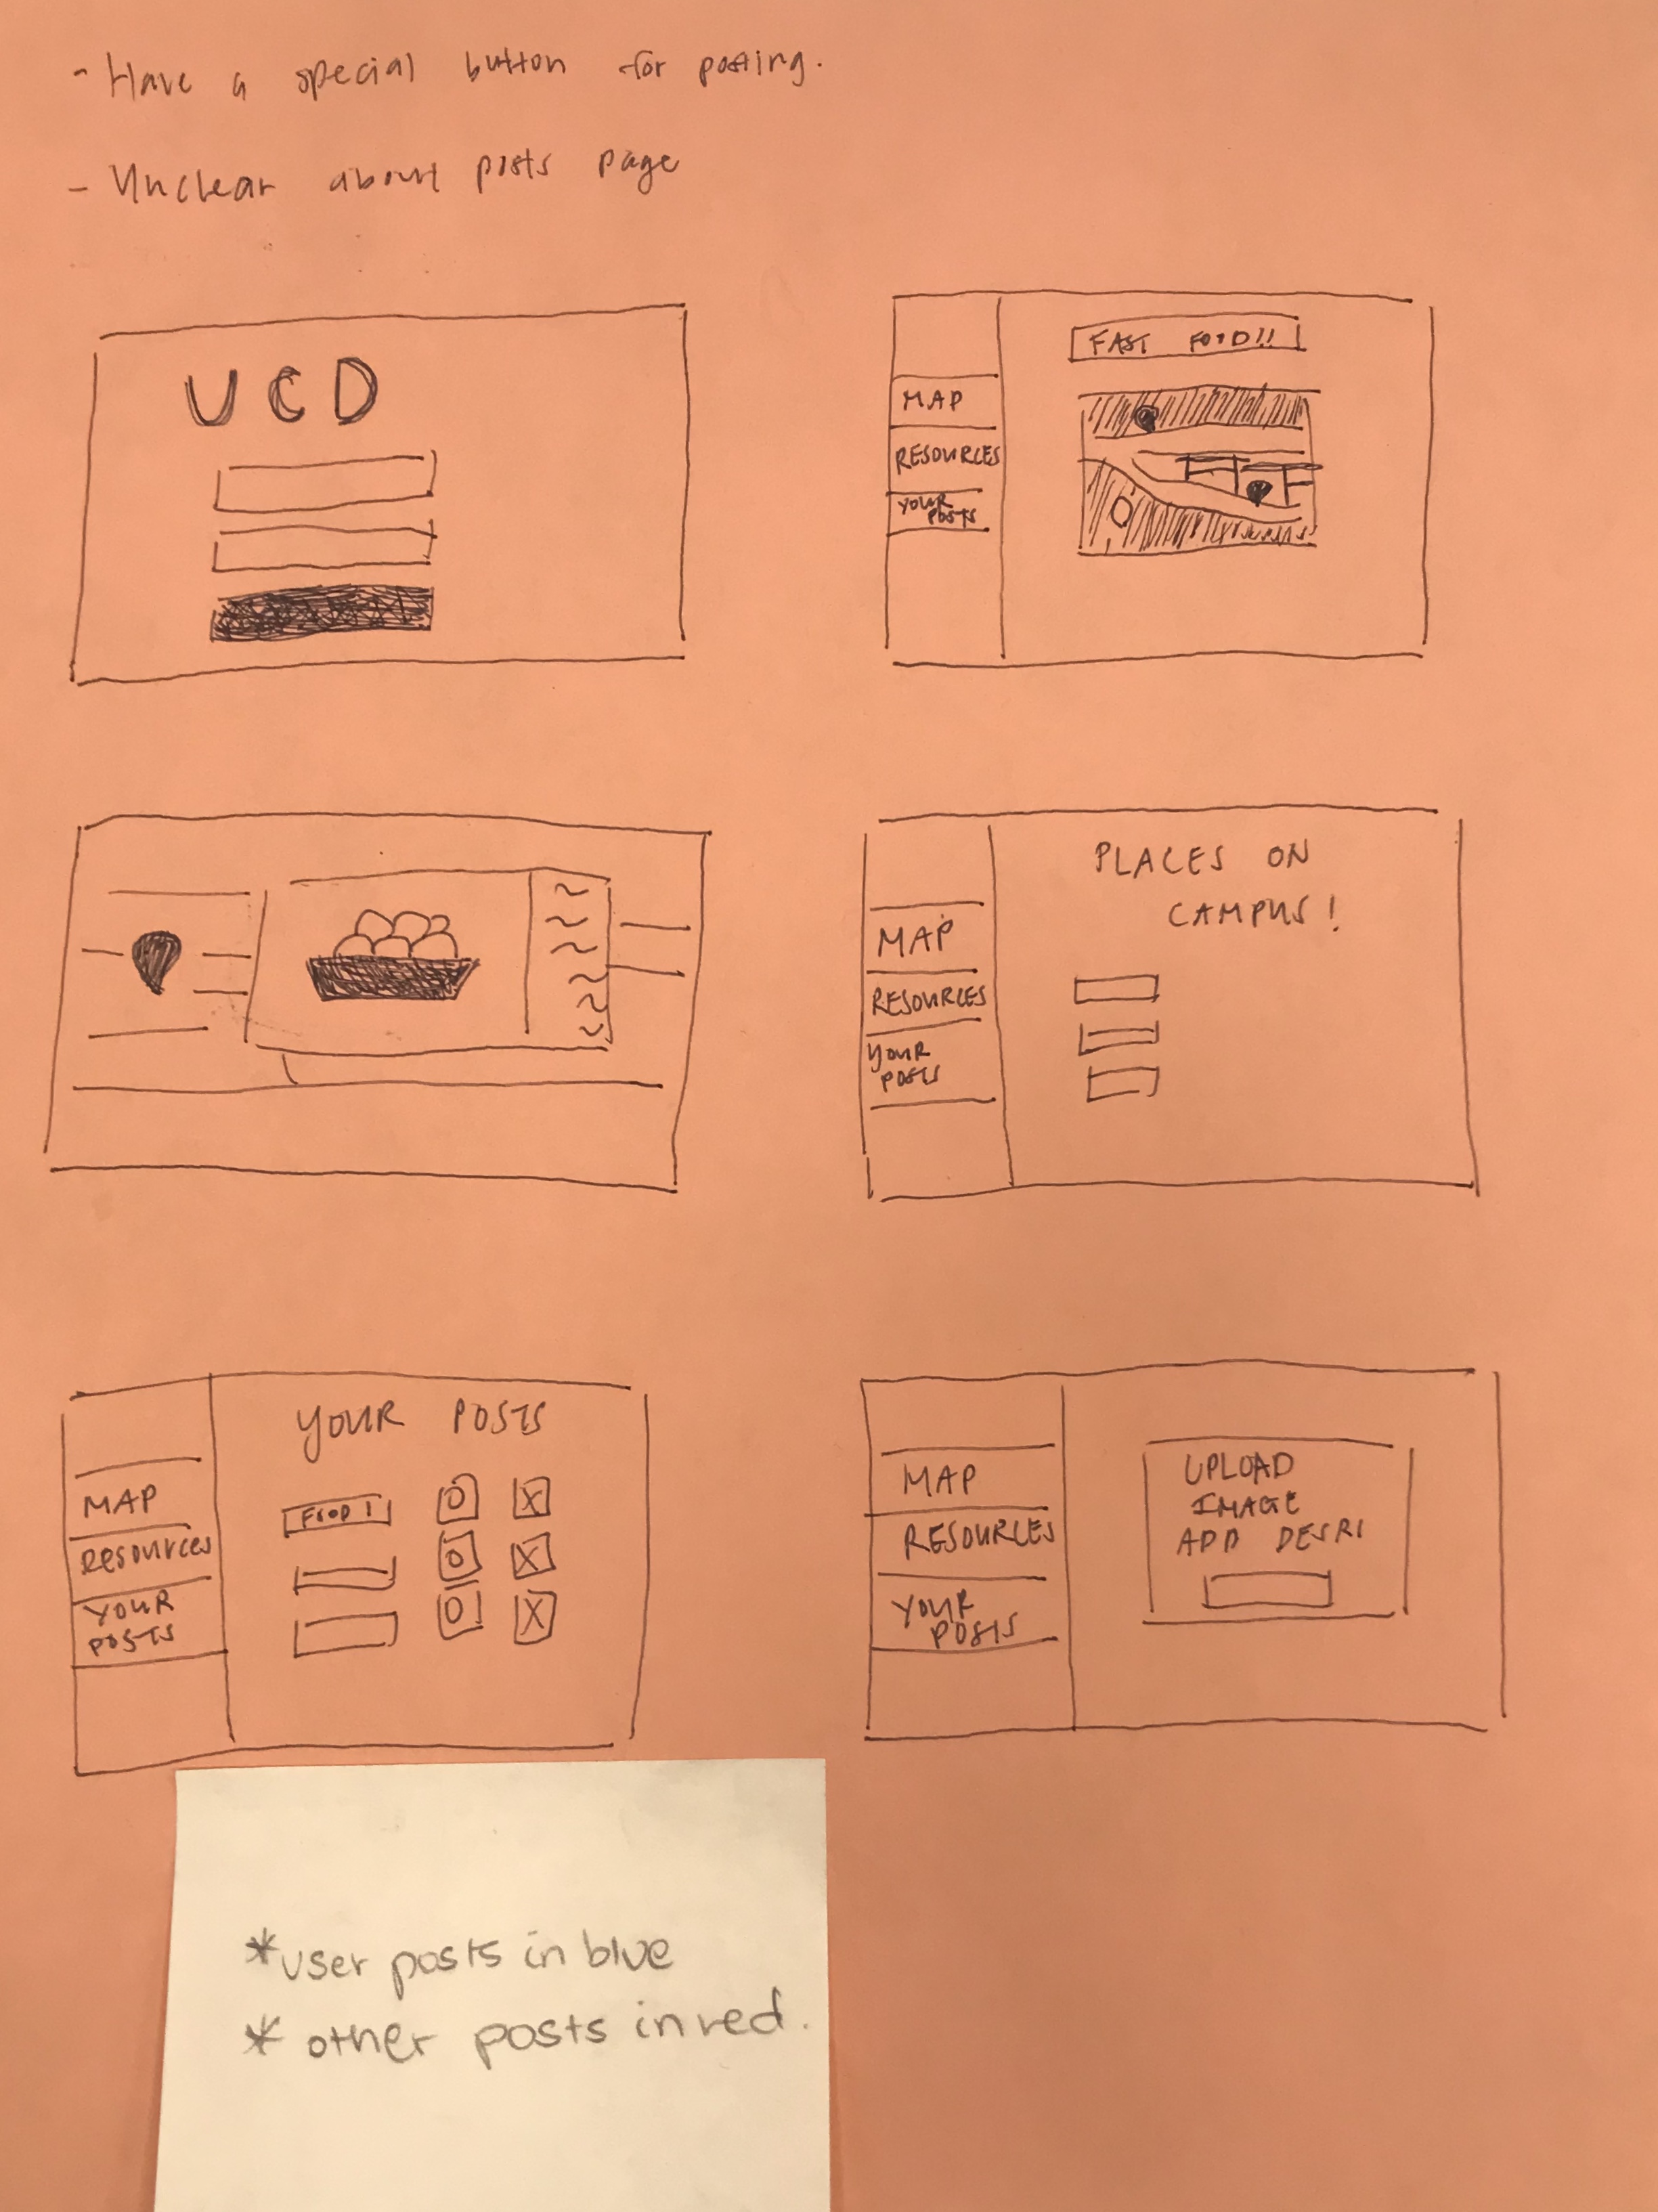 - Have a special button for posting.
- Unclear about posts page
UCD
FAST FOOD!!
MAP
RESOURCES
YOUR
POSTS
PLACES ON
CAMPUS!
MAP
RESOURCES
YOUR
POSTS
YOUR POSTS
MAP
RESOURCES
YOUR
POSTS
FOOD 1
UPLOAD
IMAGE
ADD DESRI
MAP
RESOURCES
YOUR
POSTS
*user posts in blue
* other posts in red.